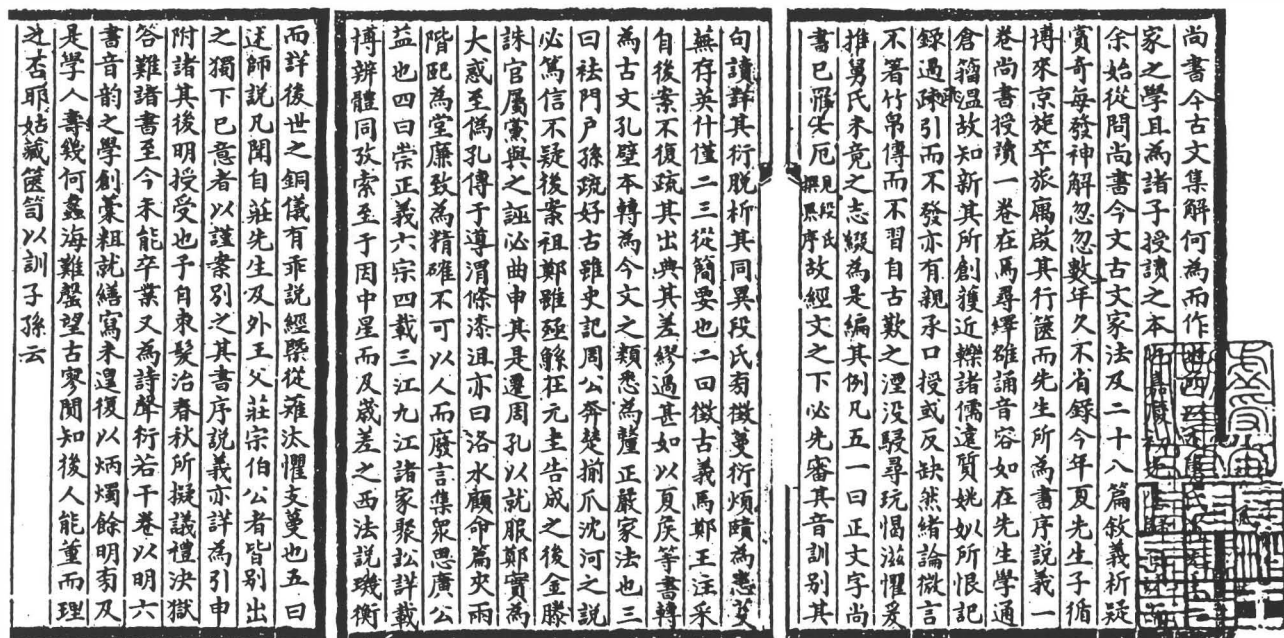 尚書今古文集解何為而作
家之學且為諸子授讀之本
余始從問尚書今文古文家法及二十八篇敘義祈疑
賞奇每發神解忽忽數年久不省錄今年夏先生子循
博來京旋卒旅寓啟其行篋而先生所為書序說義一
卷尚書授讀一卷在焉尋繹雒誦音容如在先生學通
倉籀溫故知新其所創獲近轢諸儒遠質姚姒所恨記
錄過疎引而不發亦有親承口授或反缺然緒論微言
不箸竹帛傳而不習自古歎之湮沒騣尋玩愒滋懼爰
推舅氏未竟之志綴為是編其例凡五一曰正文字尚
書已罹七厄見段氏撰異序故經文之下必先審其音訓別其
句讀詳其衍脫析其同異段氏旁徵蔓衍煩賾為恚芟
蕪存英什僅二三從簡要也二曰徵古義馬鄭王注采
自後案不復疏其出典其差繆過甚如以夏侯等書轉
為古文孔壁本轉為今文之類悉為釐正嚴家法也三
曰袪門戶孫疏好古雖史記周公奔楚揃爪沈河之說
必篤信不疑後案祖鄭雖殛鯀在元圭告成之後金縢
誅官屬黨與之誣必曲申其是遷周孔以就服鄭實為
大惑至偽孔傳于導渭條漆沮亦曰洛水顧命篇夾兩
階戺為堂廉致為精確不可以人而廢言集眾思廣公
益也四曰崇正義六宗四載三江九江諸家聚訟詳載
博辨體同攷索至于因中星而及歲差之西法說璣衡
而詳後世之銅儀有乖說經槩從薙汰懼支蔓也五曰
述師說凡聞自莊先生及外王父莊宗伯公者皆別出
之獨下己意者以謹案別之其書序說義亦詳為引申
附諸其後明授受也予自束髮治春秋所擬議禮決獄
答難諸書至今未能卒業又為詩聲衍若干卷以明六
書音韵之學創纂粗就繕寫未遑復以炳燭餘明旁及
是學人壽幾何蠡海難罄望古寥闃知後人能重而理
之否耶姑藏篋笥以訓子孫云